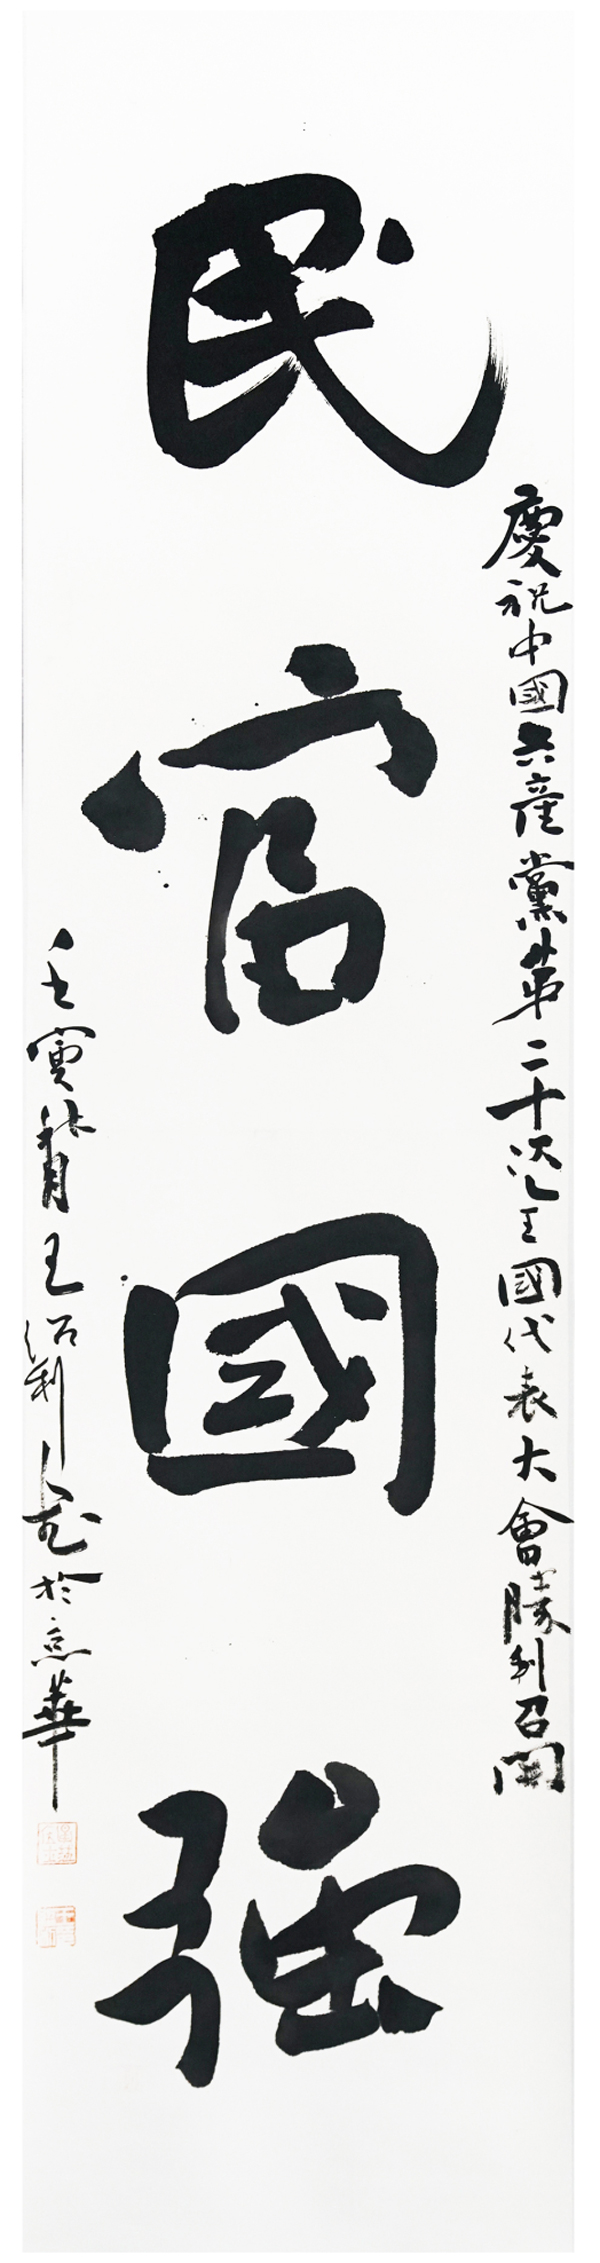 慶祝中國共產黨第二十次全國代表大會勝利召開
民富國強
壬寅秋月王紹利於京華